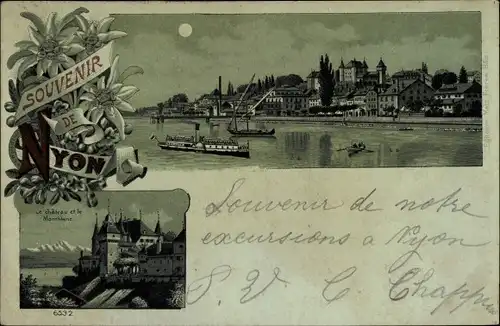 SOUVENIR
DE
NYON
Le château et le
Montblanc
6532
Souvenir de notre
excursions a Nyon
P. V. C. Chappuis